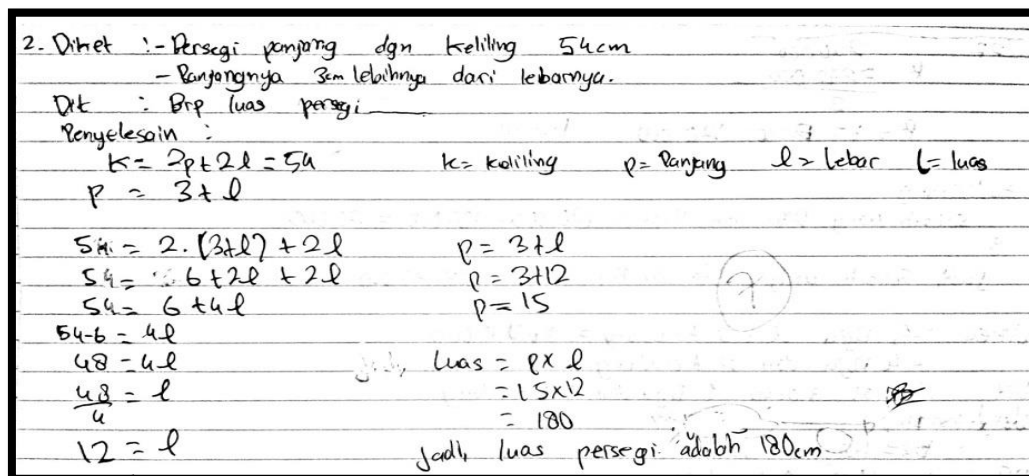 2. Diket :- Persegi panjang dgn keliling 54cm
- Panjangnya 3cm lebihnya dari lebarnya.
Dit : Brp luas persegi
Penyelesain :
K = 2p + 2l = 54 k = keliling p = Panjang l = lebar L = luas
p = 3 + l
54 = 2. (3+l) + 2l
54 = 6 + 2l + 2l
54 = 6 + 4l
54-6 = 4l
48 = 4l
48/4 = l
12 = l
p = 3 + l
p = 3+12
p = 15
7
Luas = p x l
= 15x12
= 180
Jadi, luas persegi adalah 180cm